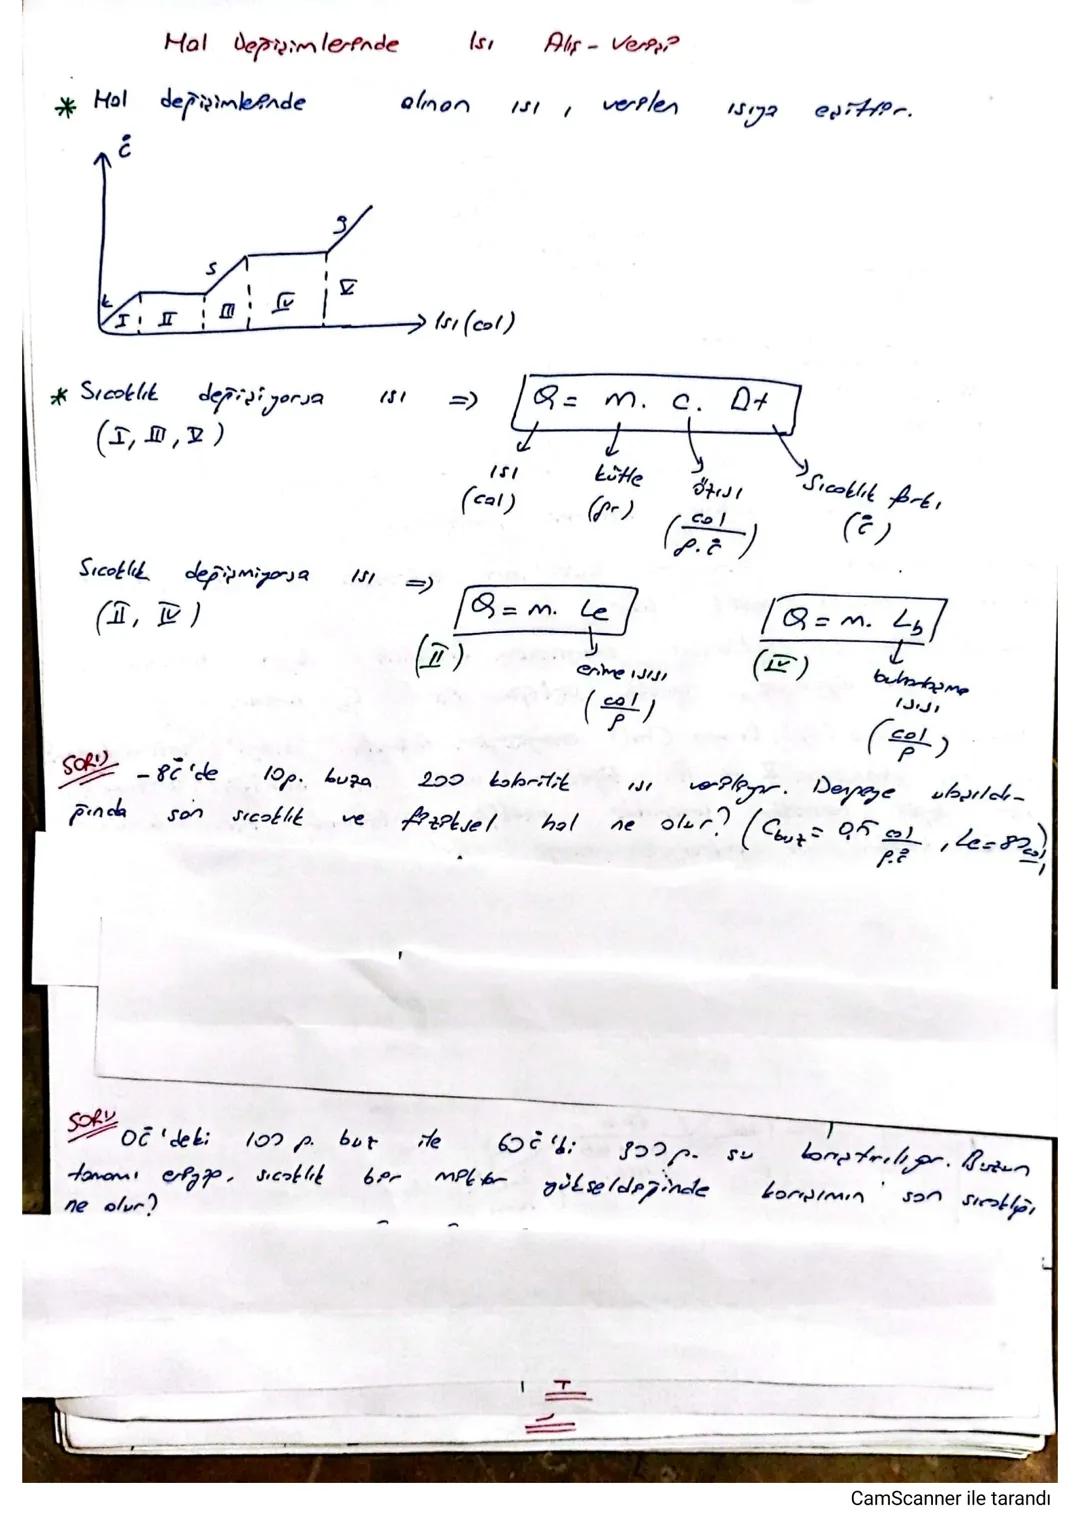 Hal Değişimlerinde Isı Alış-Verişi
* Hal değişimlerinde alınan ısı, verilen ısıya eşittir.
°C
k
s
g
I II III IV V
Isı (cal)
* Sıcaklık değişiyorsa ısı => Q = m. c. Δt
(I, III, V)
ısı kütle özısı Sıcaklık farkı
(cal) (gr) (cal/g.°C) (°C)
Sıcaklık değişmiyorsa ısı => Q = m. Le Q = m. Lb
(II, IV) (II) (IV)
erime ısısı buharlaşma ısısı
(cal/g) (cal/g)
SORU) -8°C'de 10g. buza 200 kalorilik ısı veriliyor. Dengeye ulaşıldı-
ğında son sıcaklık ve fiziksel hal ne olur? (Cbuz = 0,5 cal/g.°C, Le=80 cal
SORU 0°C'deki 100 g. buz ile 60°C'ki 300 g. su karıştırılıyor. Buzun
tamamı eriyip, sıcaklık bir miktar yükseldiğinde karışımın son sıcaklığı
ne olur?
CamScanner ile tarandı